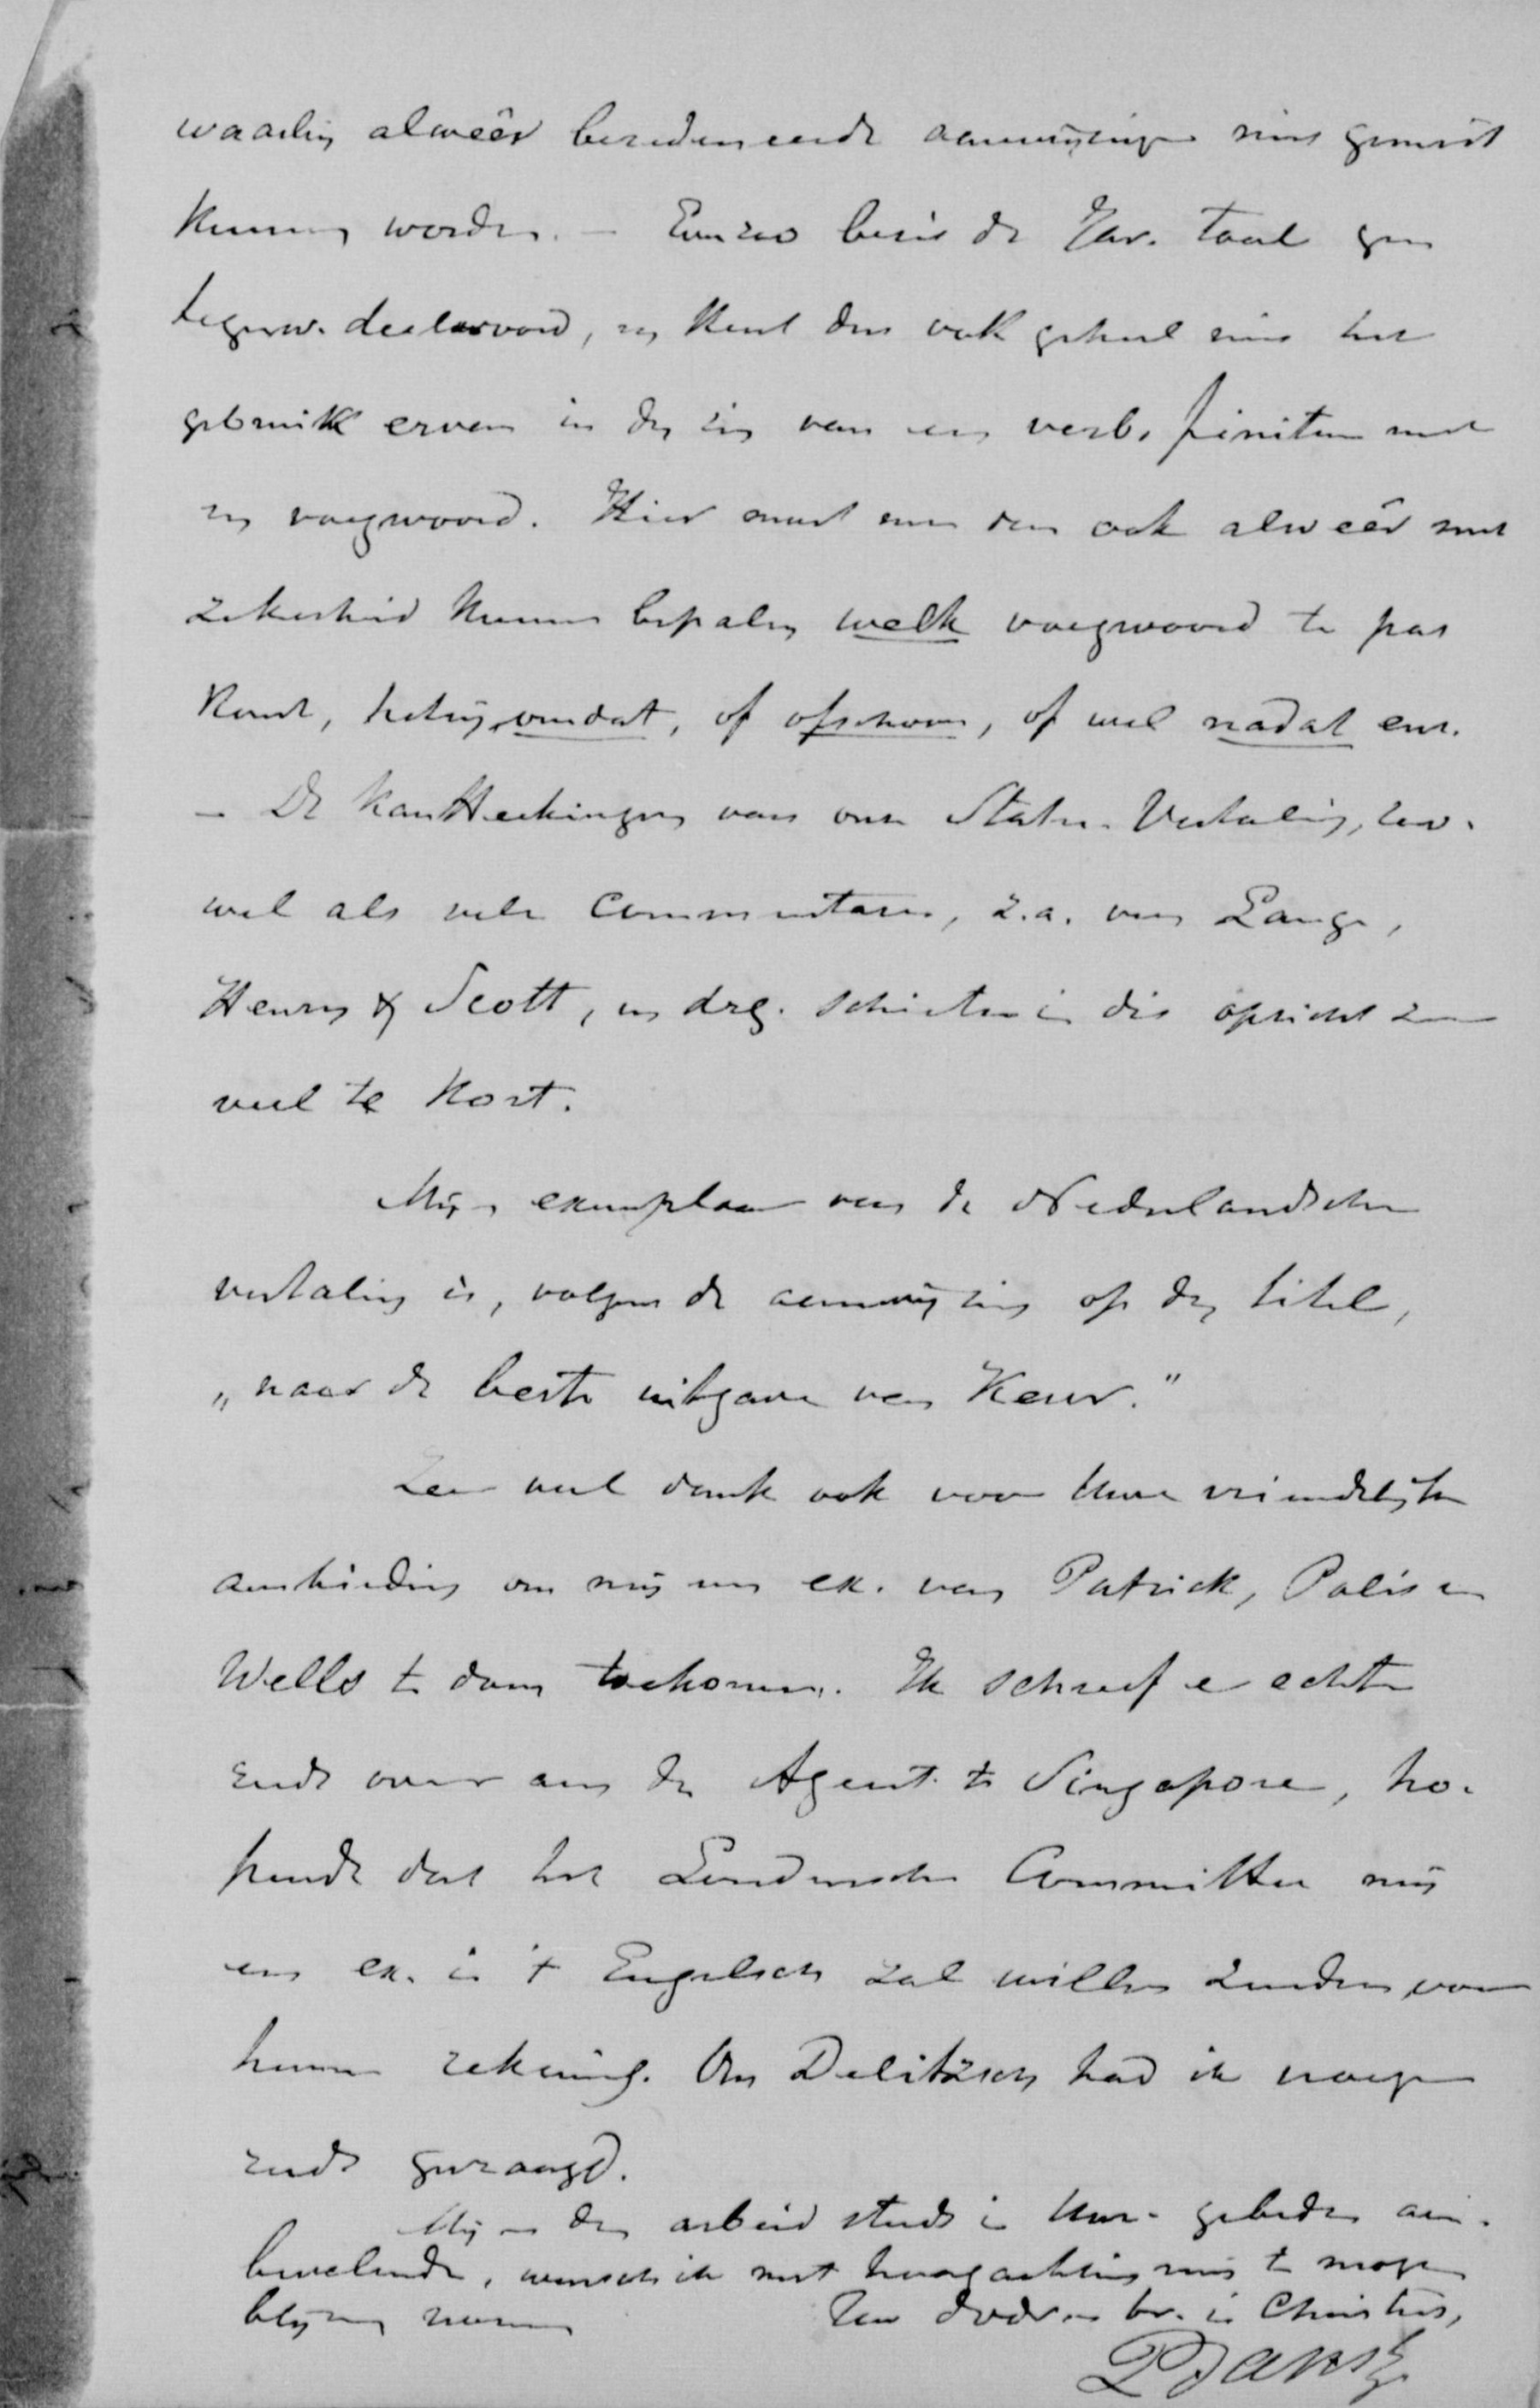 waarbij alweêr beredeneerde aanwijzingen niet gemist
kunnen worden. — Evenzoo bezit de Jav. taal geen
tegenw. deelwoord, en kent dus ook geheel niet het
gebruik ervan in den zin van een verb. finitum met
een voegwoord. Hier moet men dan ook alweêr met
zekerheid kunnen bepalen welk voegwoord te pas
komt, hetzij omdat, of ofschoon, of wel nadat enz.
— De kantteekeningen van onze Staten-Vertaling, zoo-
wel als vele Commentaren, z.a. van Lange,
Henry & Scott, en drg. schieten in dit opzicht zeer
veel te kort.
Mijn exemplaar van de Nederlandsche
vertaling is, volgens de aanwijzing op den titel,
„naar de beste uitgave van Keur."
Zeer veel dank ook voor Uwe vriendelijke
aanbieding om mij een ex. van Patrick, Polus en
Wells te doen toekomen. Ik schreef er echter
reeds over aan den Agent te Singapore, ho-
pende dat het Londensche Committee mij
een ex. in 't Engelsch zal willen zenden voor
hunne rekening. Om Delitzsch had ik vroeger
reeds gevraagd.
Mij en den arbeid steeds in Uwe gebeden aan-
bevelende, wensch ik met hoogachting mij te mogen
blijven noemen Uw dwdr. en br. in Christus,
P Jansz